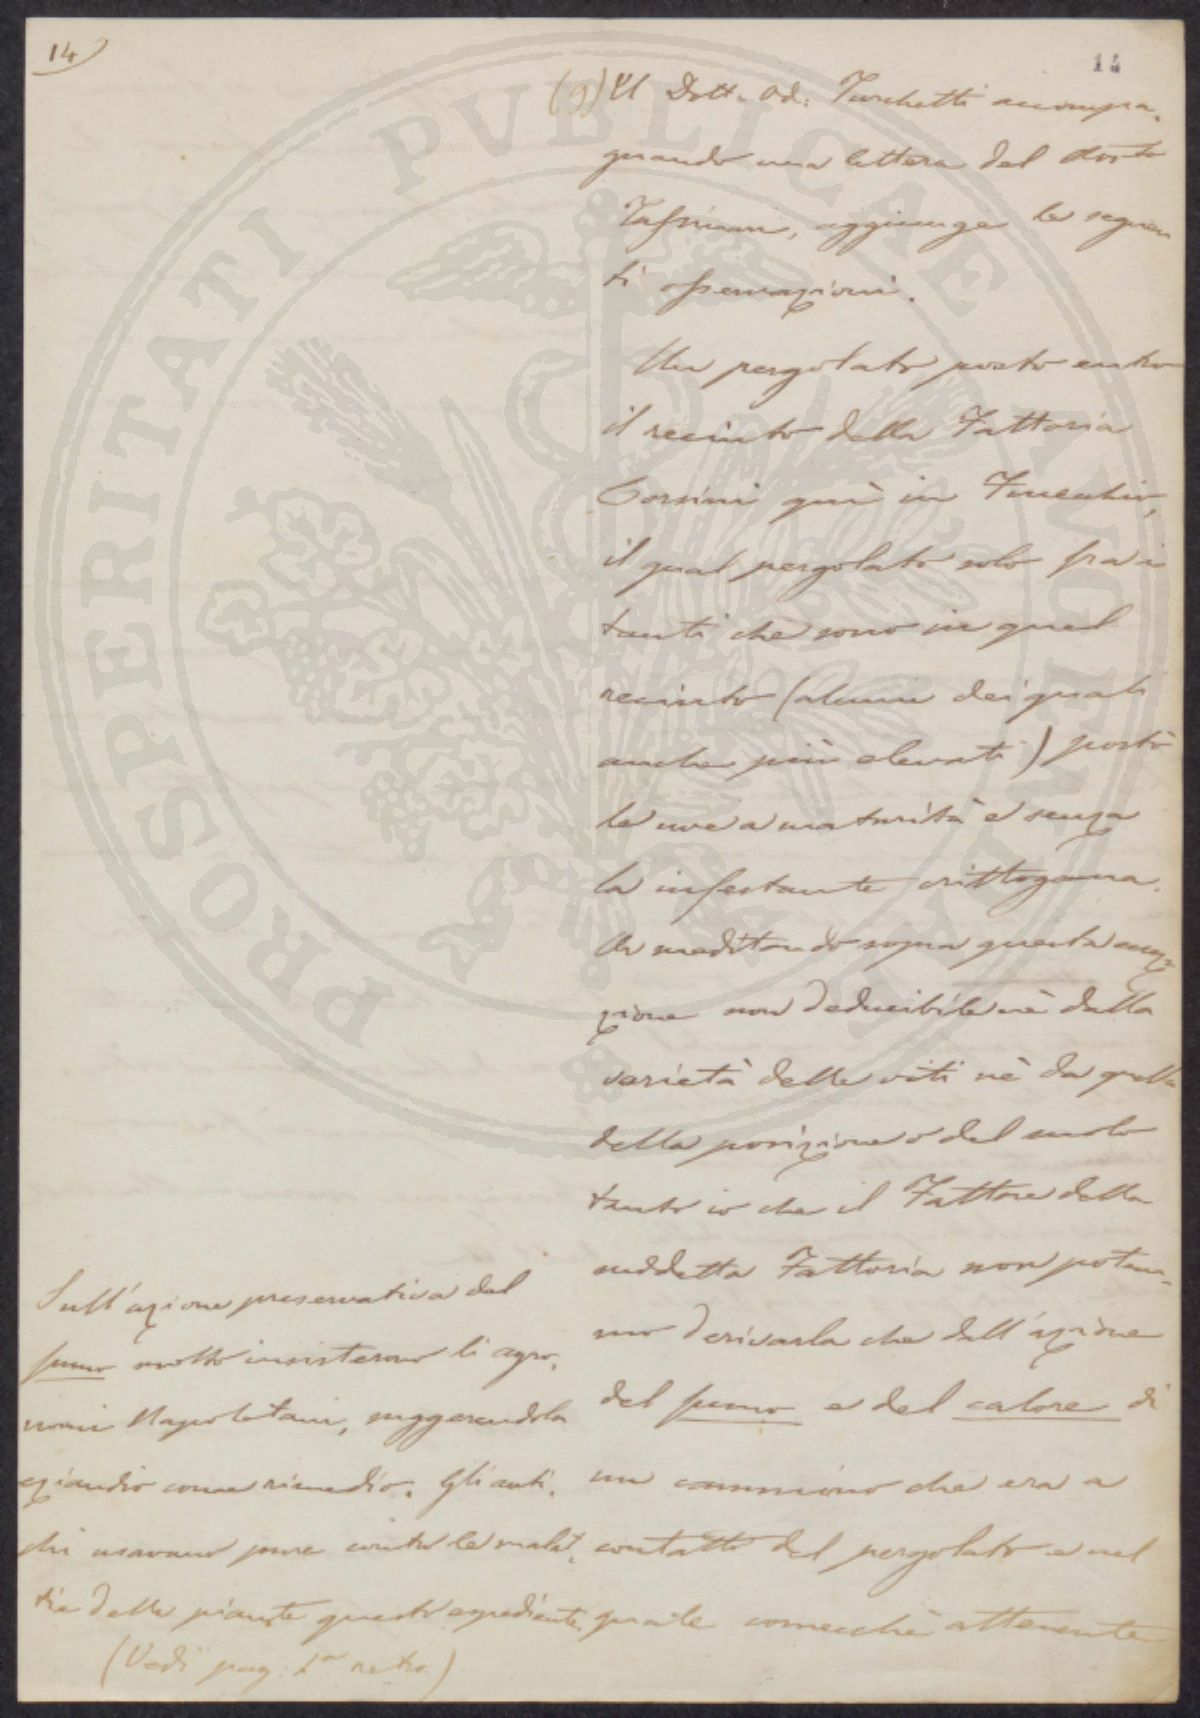 14)
14
(9) Il Dott. Od: Turchetti accompa-
gnando una lettera del
aggiunge le seguen
ti osservazioni.
Un pergolato posto entro
il recinto della Fattoria
Corsini quì in Fucechio,
il qual pergolato solo fra i
tanti che sono in quel
recinto (alcuni dei quali
anche più elevati) portò
le uve a maturità e senza
la infestante crittogama.
Or meditando sopra questa
zione non deducibile nè dalla
varietà delle viti nè da quella
della posizione o del suolo
tanto io che il Fattore della
suddetta Fattoria non potem-
mo derivarla che dall'azione
del fumo e del calore di
un cammino che era a
contatto del pergolato e nel
quale comecchè attenente
Sull'azione preservativa del
fumo molto insisterono li agro-
nomi Napoletani, suggerendola
eziandio come rimedio. Gli anti-
chi usavano pure contro le malat-
tie delle piante questo espediente.
(Vedi pag: 1a retro.)
PROSPERITATI PUBLICAE AUGENDAE